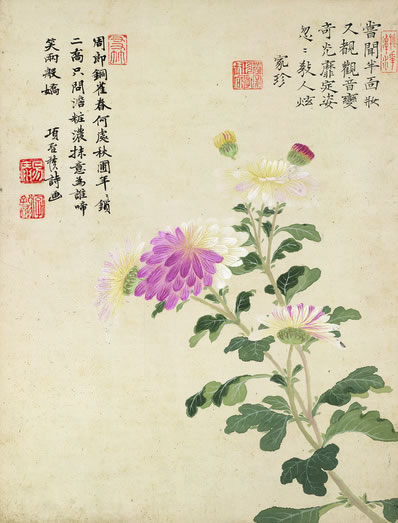 嘗聞半面妝
又覩觀音變
奇光靡定姿
忽〻教人炫
家珍
周郎銅雀春何處秋圃年〻鎖
二喬只問淡粧濃抹意為誰啼
笑兩般嬌
項聖謨詩画